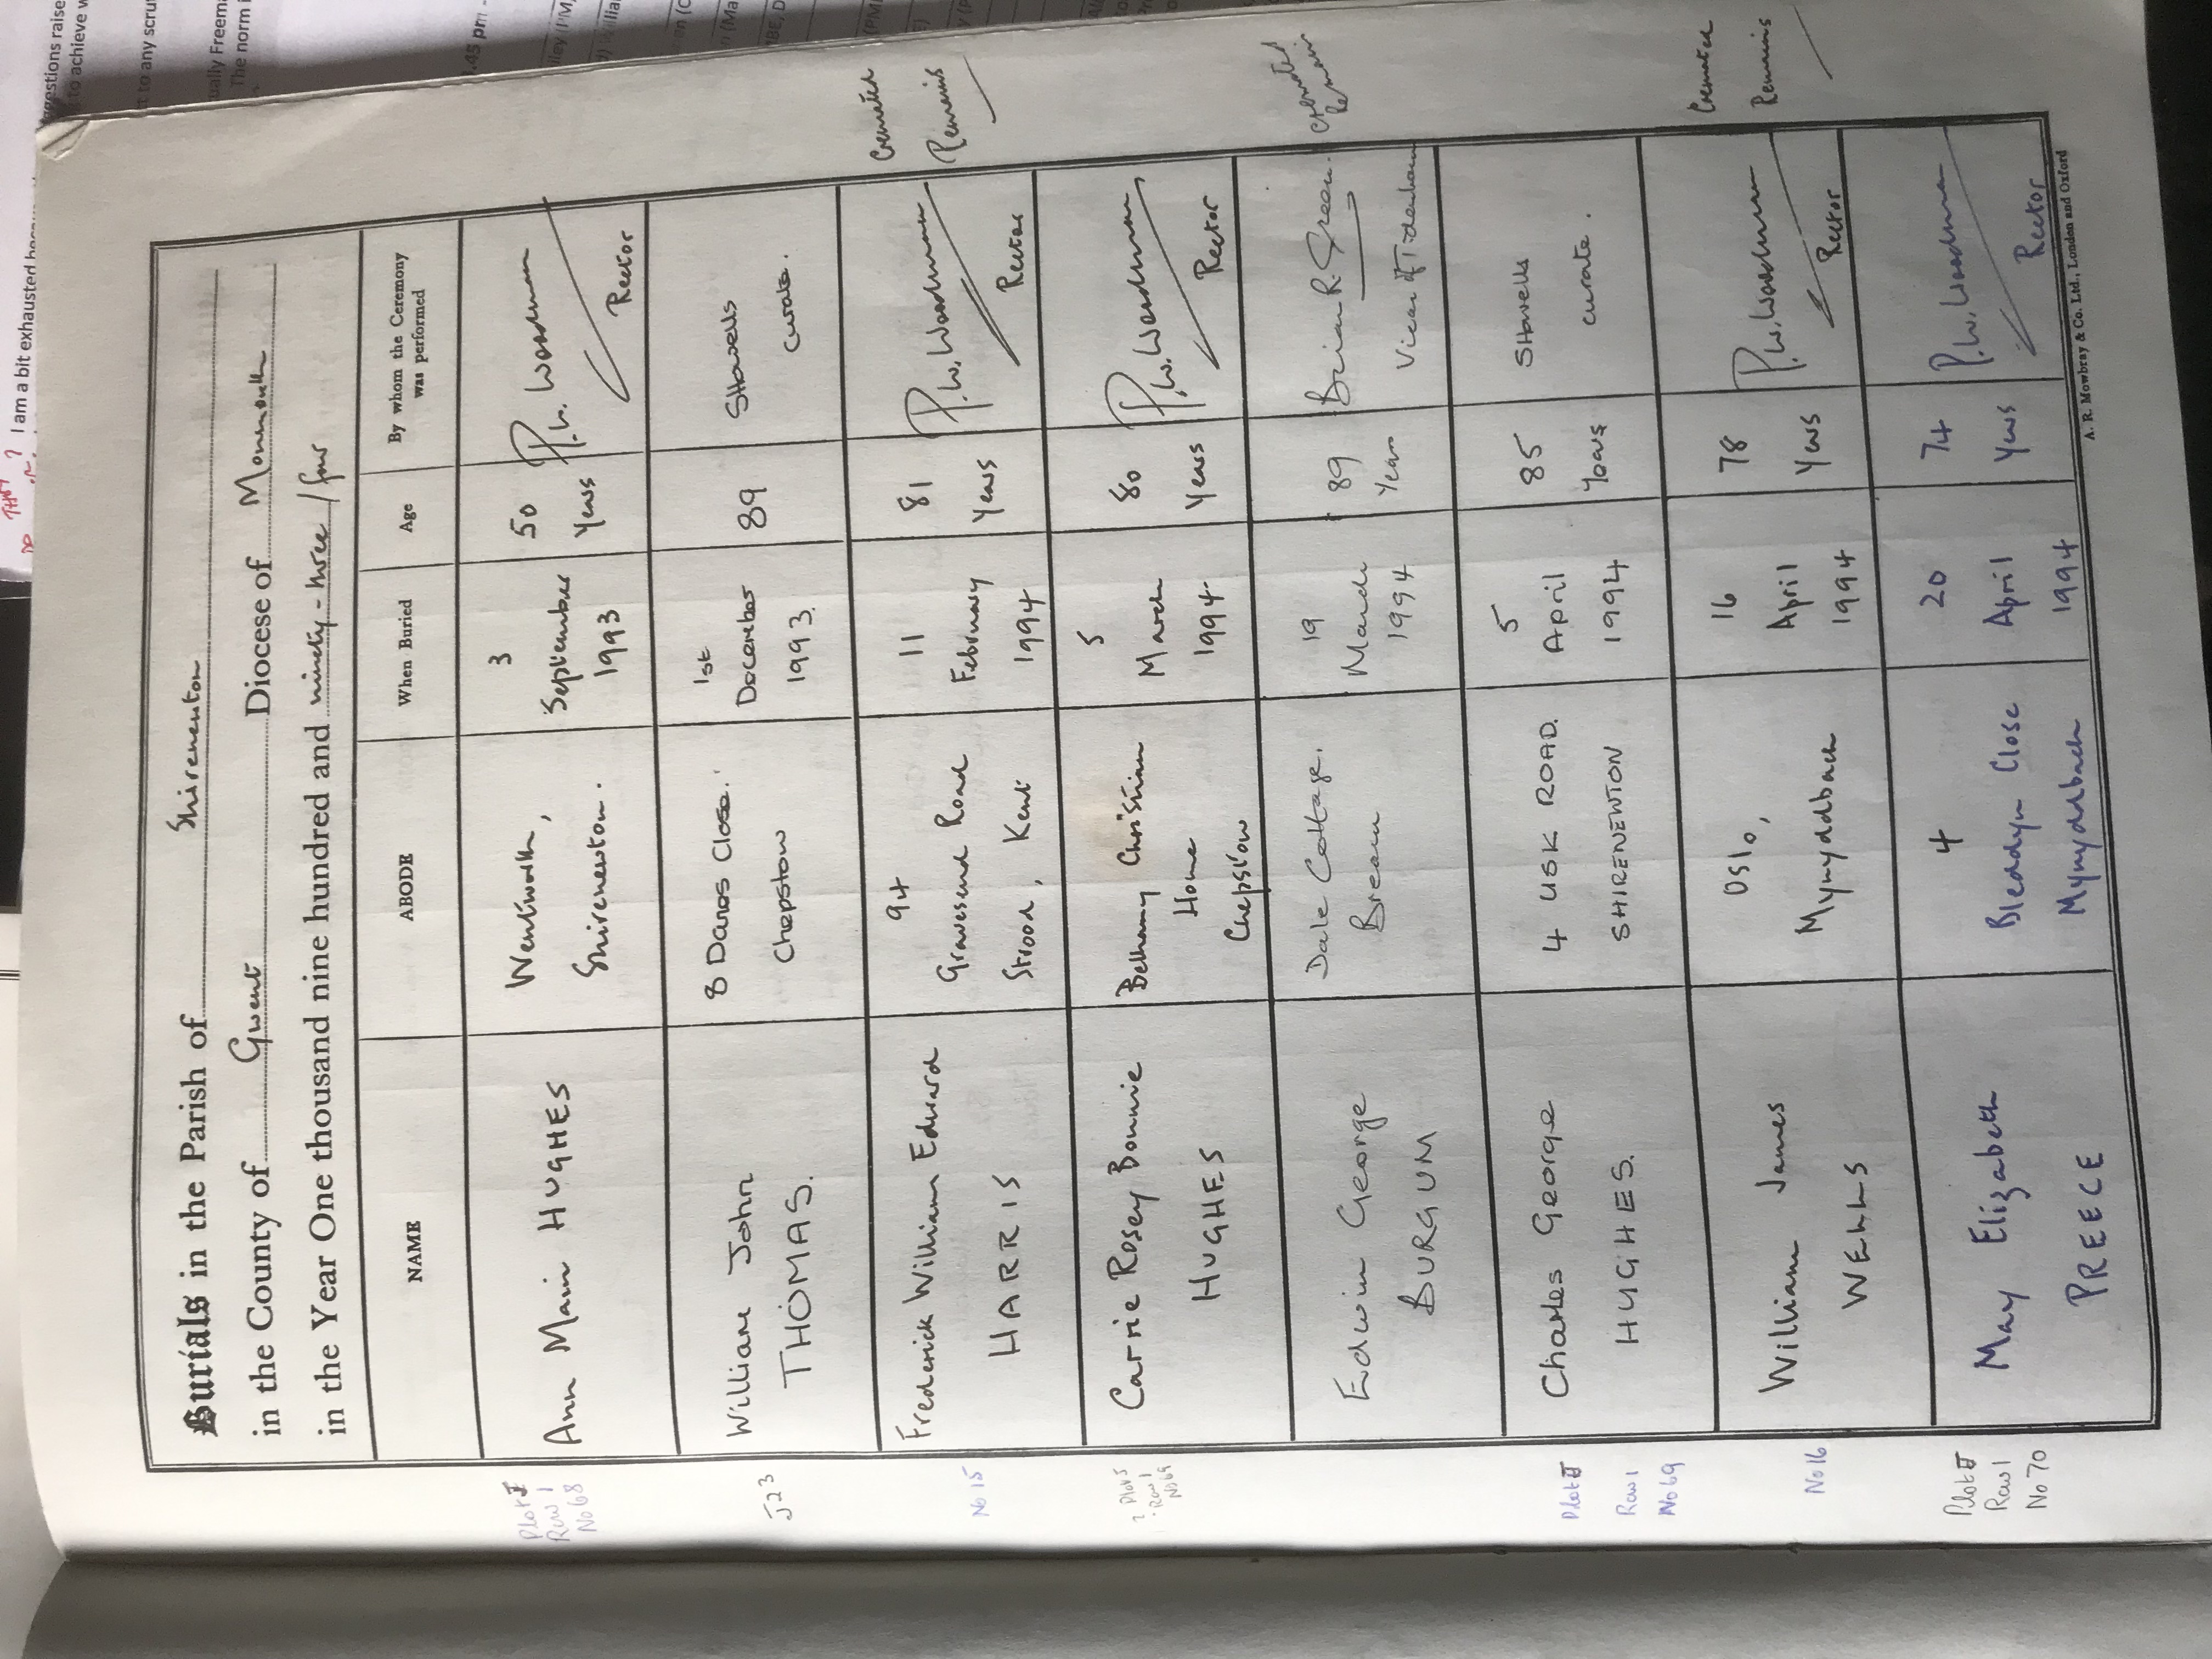 I am a bit exhausted
Burials in the Parish of Shirenewton
in the County of Gwent Diocese of Monmouth
in the Year One thousand nine hundred and ninety-three/four
NAME ABODE When Buried Age By whom the Ceremony was performed
Plot J
Row 1
No 68
Ann Marie HUGHES
Wentworth,
Shirenewton.
3
September
1993
50
Years
P.W. Woodman
Rector
J23
William John
THOMAS.
8 Danes Close.
Chepstow
1st
December
1993.
89
SHowells
Curate.
No 15
Frederick William Edward
HARRIS
94
Gravesend Road
Strood, Kent
11
February
1994
81
Years
P.W. Woodman
Rector
Cremated
Remains
? Plot J
Row 1
No 69
Carrie Rosey Bonnie
HUGHES
Bethany Christian
Home
Chepstow
5
March
1994
80
Years
P.W. Woodman
Rector
Edwin George
BURGUM
Dale Cottage.
Brean
19
March
1994
89
Years
Brian R. Green.
Vicar of Tidenham
Cremated
Remains
Plot J
Row 1
No 69
Charles George
HUGHES.
4 USK ROAD.
SHIRENEWTON
5
April
1994
85
Years
SHowells
Curate.
No 16
William James
WELLS
Oslo,
Mynyddbach
16
April
1994
78
Years
P.W. Woodman
Rector
Cremated
Remains
Plot J
Row 1
No 70
May Elizabeth
PREECE
4
Bleddyn Close
Mynyddbach
20
April
1994
74
Years
P.W. Woodman
Rector
A. R. Mowbray & Co. Ltd., London and Oxford